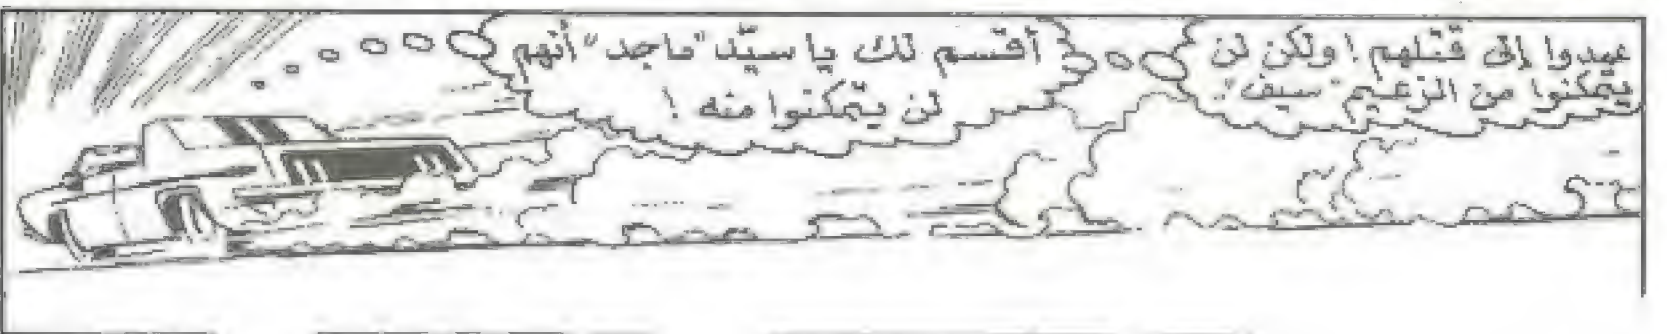 عمدوا إلى قتلهم ! ولكن لن
يتمكنوا من الزعيم "سيف".
أقسم لك يا سيّد "ماجد" أنهم
لن يتمكنوا منه !